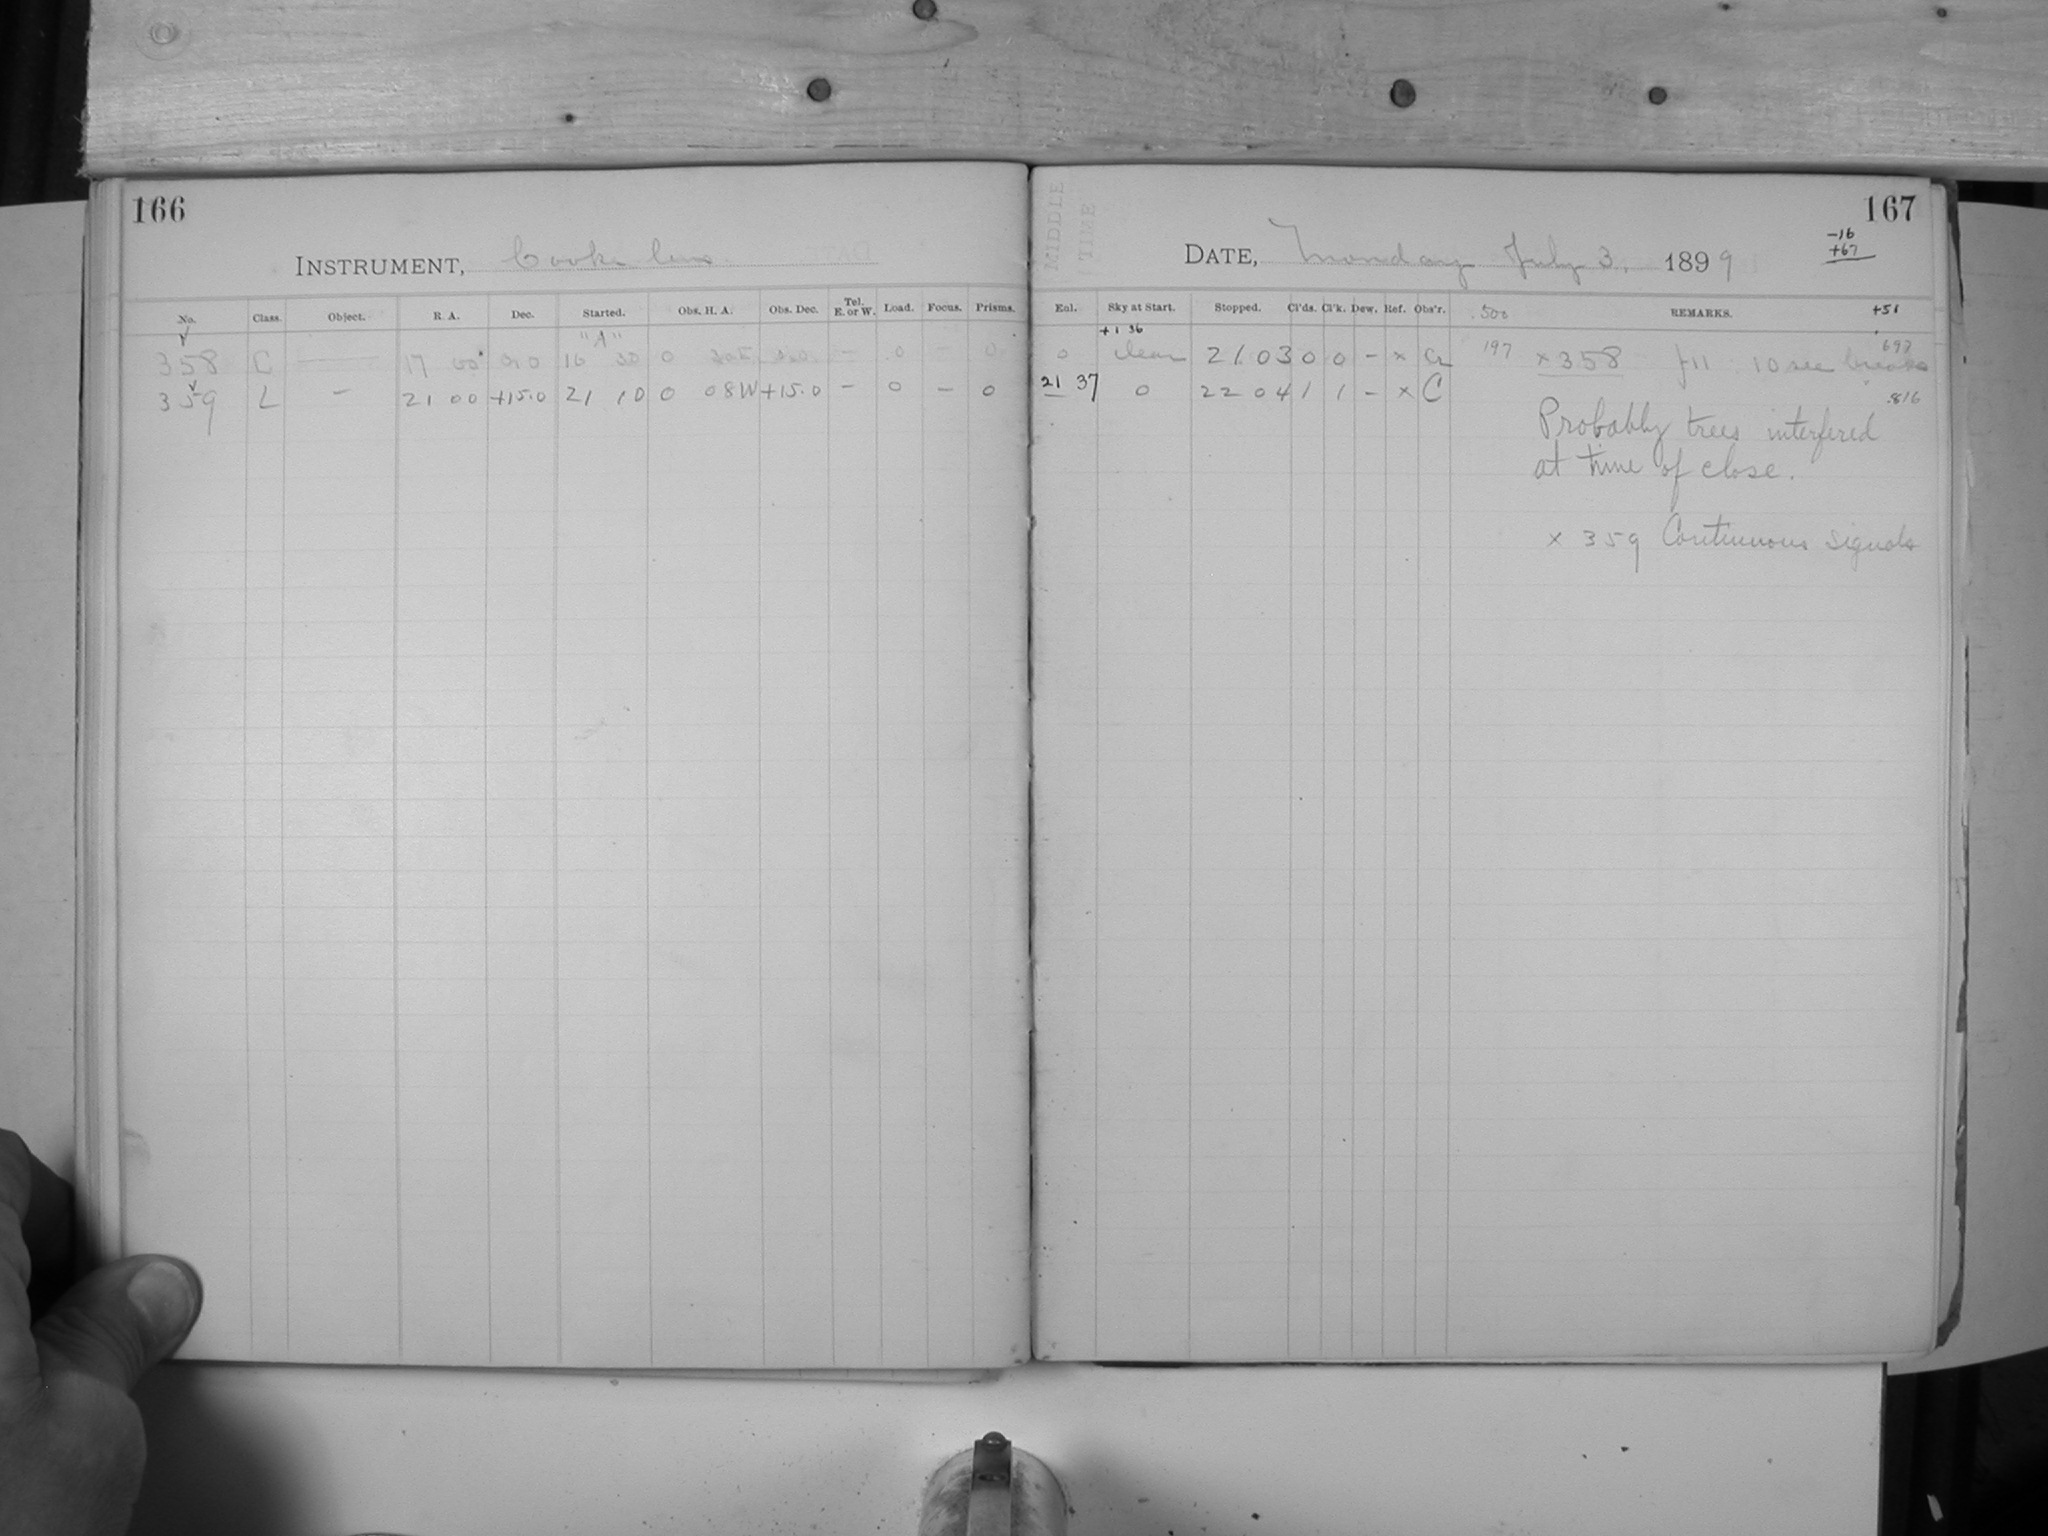 166
INSTRUMENT, Cooke lens
No. Class. Object. R. A. Dec. Started. Obs. H. A. Obs. Dec. Tel. E. or W. Load. Focus. Prisms.
"A"
358 C — 17 00 16 30 0 — 0 — 0
359 L — 21 00 +15.0 21 10 0 08W +15.0 — 0 — 0
167
MIDDLE
TIME
DATE, Monday July 3, 1899
-16
+67
+51
Exl. Sky at Start. Stopped. Cl'ds. Cl'k. Dew. Ref. Obs'r. 500 REMARKS.
+1 36
0 clear 21 03 0 0 — x 197 x 358 10 sec breaks
21 37 0 22 04 1 1 — x C .816
Probably trees interfered
at time of close.
x 359 Continuous signals